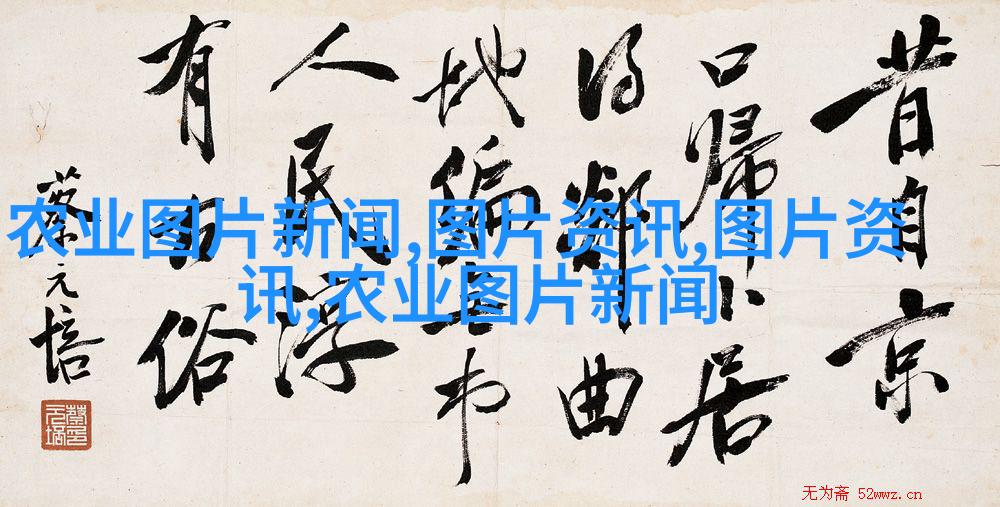 昔自京
口歸卜居
得鄰曲
地偏市
人民淳
有俗
蔡元培
农业图片新闻,图片资讯,图片资
讯,农业图片新闻
无为斋 52wwz.cn